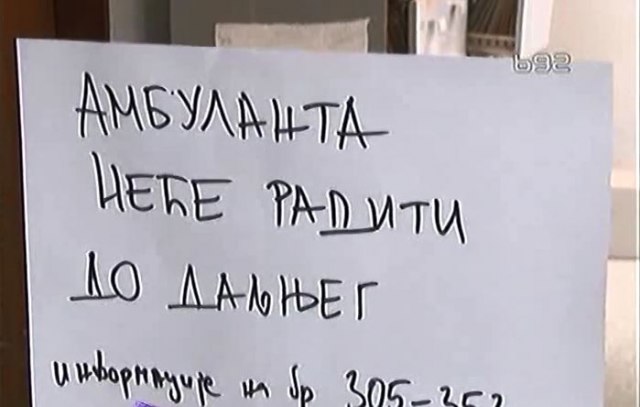 b92
АМБУЛАНТА
НЕЋЕ РАДИТИ
ДО ДАЉЊЕГ
информације на бр 305-353